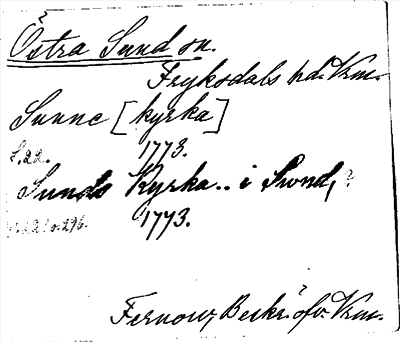 Östra Sund sn.
Fryksdals hd. Vrm.
Sunne [kyrka]
S. 22. 1773.
Sunds Kyrka.. i Sund,
s. 22 o. 296. 1773.
Fernow, Beskr. öfv. Vrm.